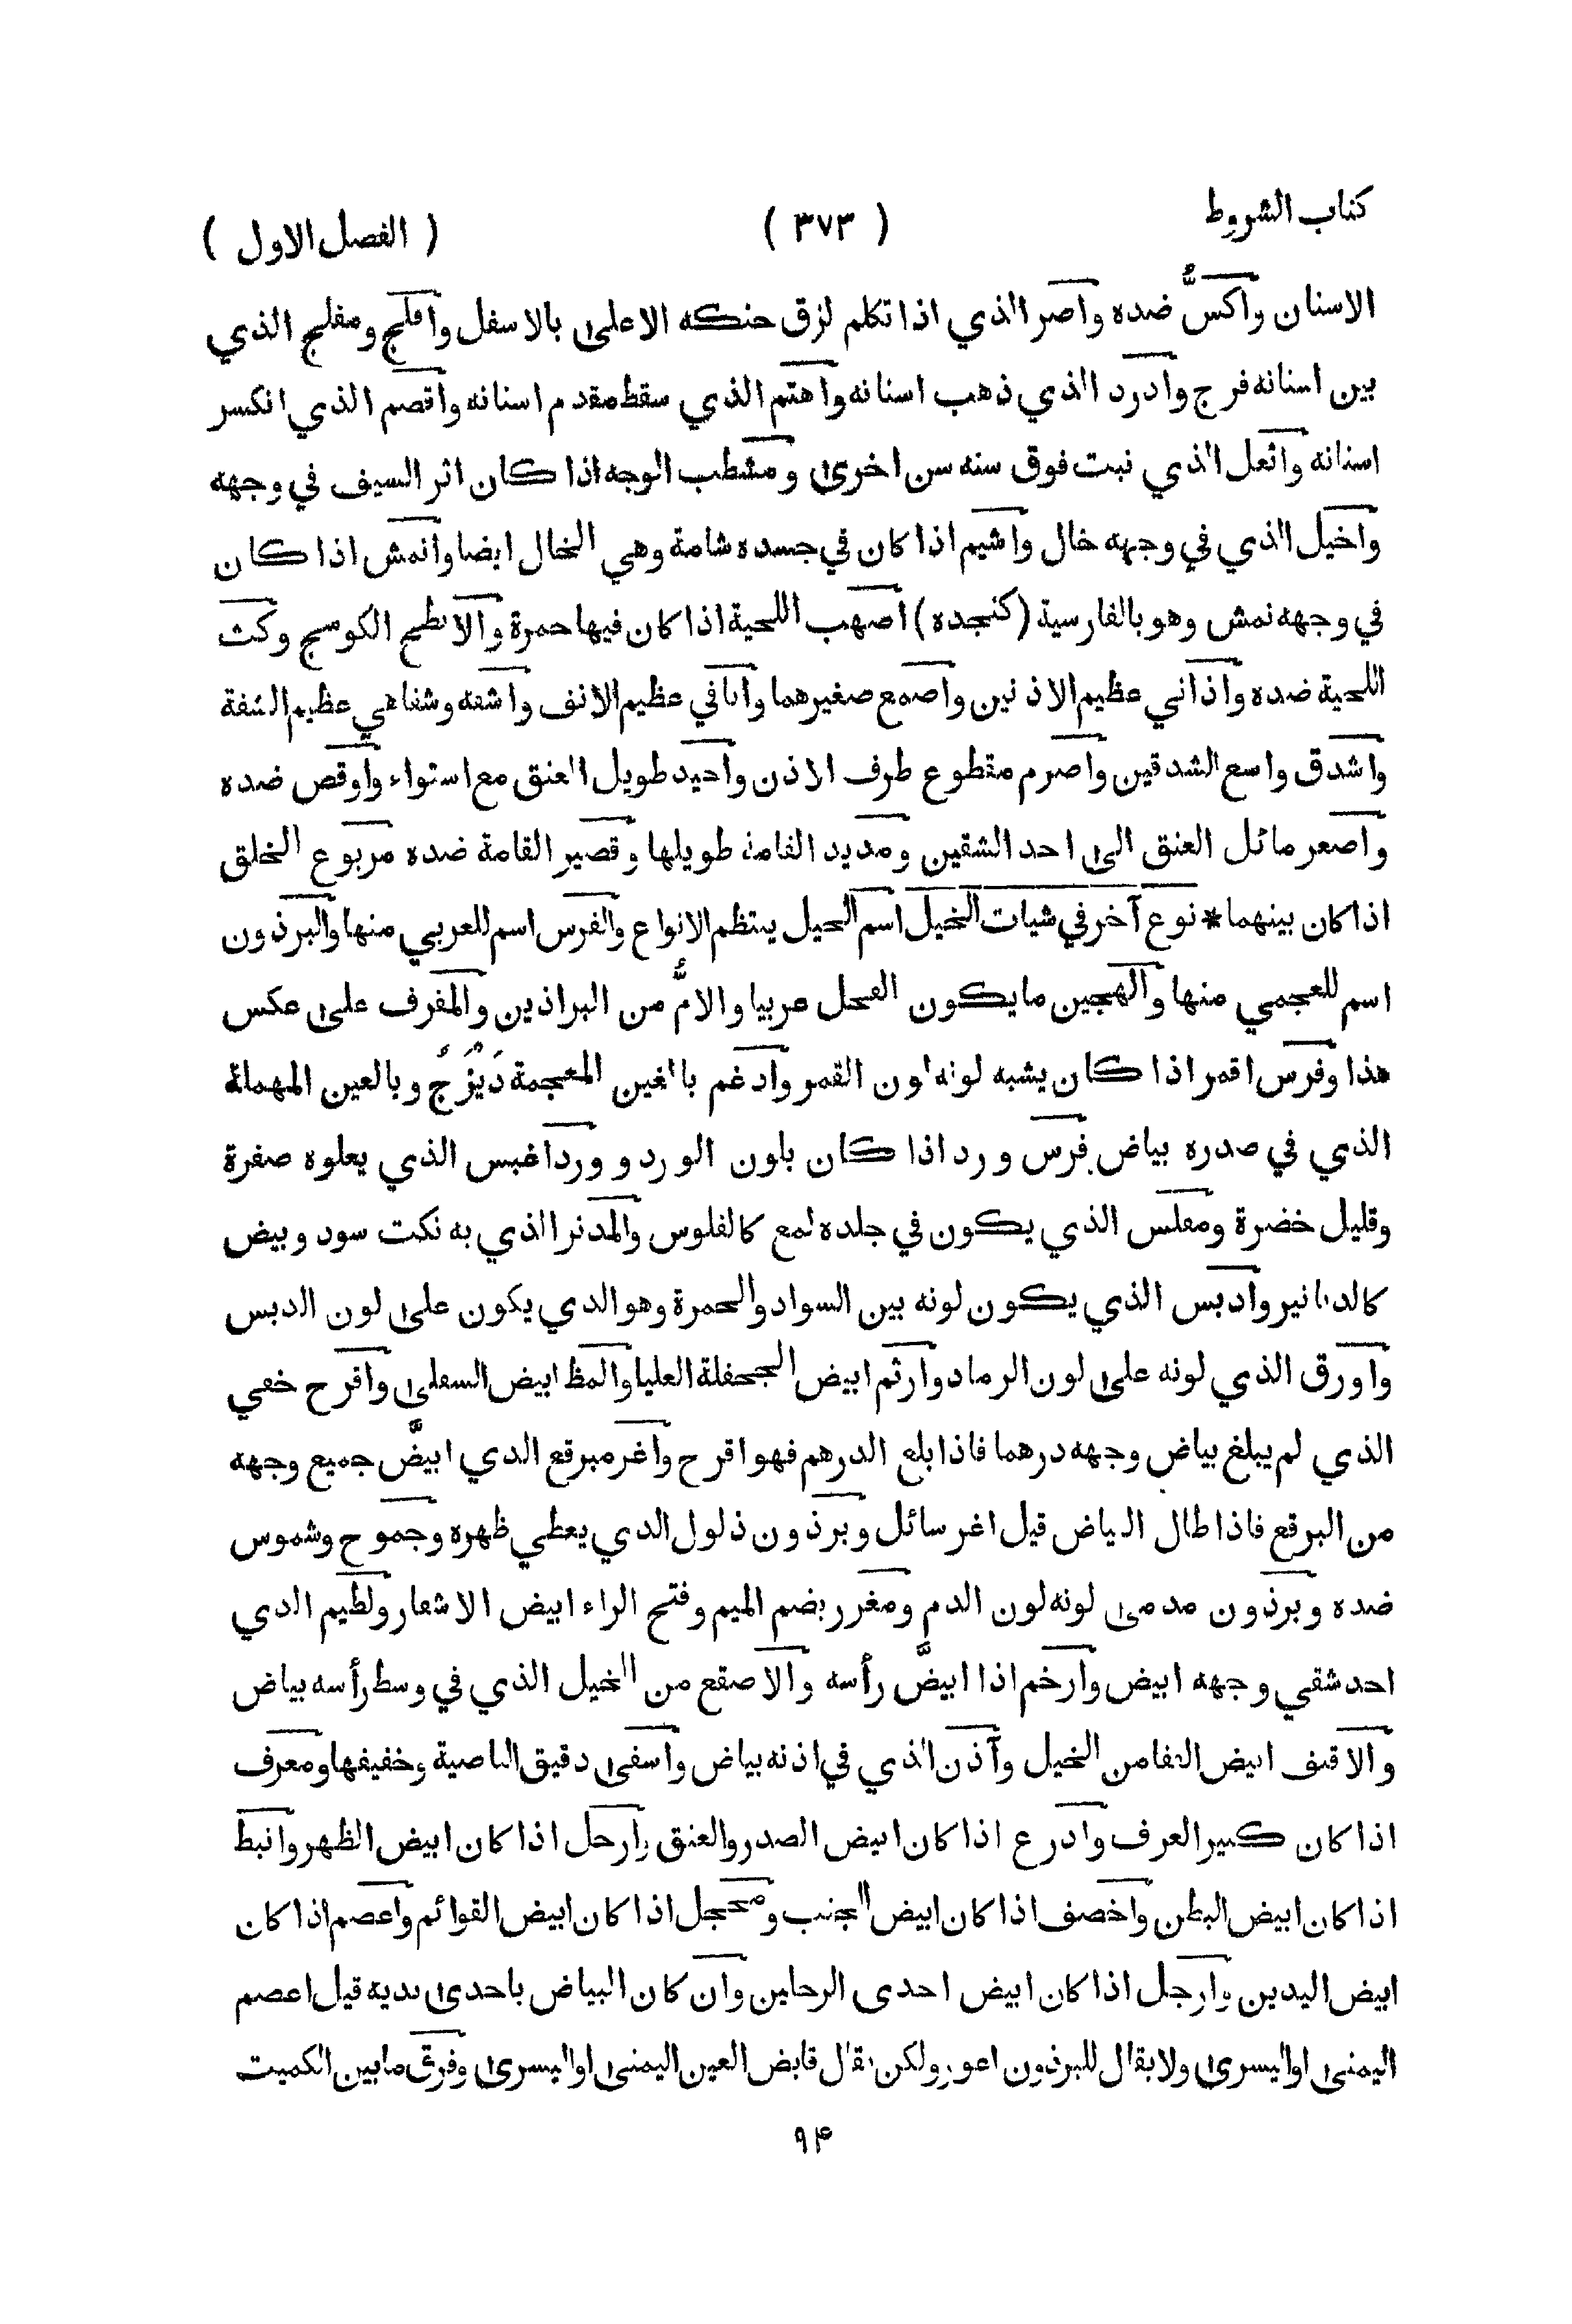 كتاب الشروط ( ٣٧٣ ) ( الفصل الاول )
الاسنان واكسُّ ضده واصر الذي اذا تكلم لزق حنكه الاعلى بالاسفل وافلج ومفلج الذي
بين اسنانه فرج وادرد الذي ذهب اسنانه واهتم الذي سقط مقدم اسنانه واقصم الذي انكسر
اسنانه واثعل الذي نبت فوق سنه سن اخرى ومشطب الوجه اذا كان اثر السيف في وجهه
واخيل الذي في وجهه خال واشيم اذا كان في جسده شامة وهي الخال ايضا وانمش اذا كان
في وجهه نمش وهو بالفارسية (كنجده) اصهب اللحية اذا كان فيها حمرة والانطح الكوسج وكث
اللحية ضده واذاني عظيم الاذنين واصمع صغيرهما وانافي عظيم الانف واشفه وشفاهي عظيم الشفة
واشدق واسع الشدقين واصرم مقطوع طرف الاذن واحيد طويل العنق مع استواء واوقص ضده
واصعر مائل العنق الى احد الشقين ومديد القامة طويلها وقصير القامة ضده مربوع الخلق
اذا كان بينهما * نوع آخر في شيات الخيل اسم الخيل ينتظم الانواع والفرس اسم للعربي منها والبرذون
اسم للعجمي منها والهجين ما يكون الفحل عربيا والامُّ من البراذين والمقرف على عكس
هذا وفرس اقمر اذا كان يشبه لونه لون القمر وادغم بالغين المعجمة دَيْزَجُ وبالعين المهملة
الذي في صدره بياض فرس ورد اذا كان بلون الورد وورد اغبس الذي يعلوه صفرة
وقليل خضرة ومفلس الذي يكون في جلده لمع كالفلوس والمدنر الذي به نكت سود وبيض
كالدنانير وادبس الذي يكون لونه بين السواد والحمرة وهو الذي يكون على لون الدبس
واورق الذي لونه على لون الرماد وارثم ابيض الجحفلة العليا والمظ ابيض السفلى واقرح خفي
الذي لم يبلغ بياض وجهه درهما فاذا بلغ الدرهم فهو اقرح واغر مبرقع الذي ابيضَّ جميع وجهه
من البرقع فاذا طال البياض قيل اغر سائل وبرذون ذلول الذي يعطي ظهره وجموح وشموس
ضده وبرذون مدمى لونه لون الدم ومغرر بضم الميم وفتح الراء ابيض الاشعار ولطيم الذي
احد شقي وجهه ابيض وارخم اذا ابيضَّ رأسه والاصقع من الخيل الذي في وسط رأسه بياض
والاقنف ابيض القفا من الخيل وآذن الذي في اذنه بياض واسفى دقيق الناصية وخفيفها ومعرف
اذا كان كبير العرف وادرع اذا كان ابيض الصدر والعنق وارحل اذا كان ابيض الظهر وانبط
اذا كان ابيض البطن واخصف اذا كان ابيض الجنب ومحجل اذا كان ابيض القوائم واعصم اذا كان
ابيض اليدين وارجل اذا كان ابيض احدى الرجلين وان كان البياض باحدى يديه قيل اعصم
اليمنى او اليسرى ولا يقال للبرذون اعور ولكن يقال قابض العين اليمنى او اليسرى وفرق ما بين الكميت
٩۴